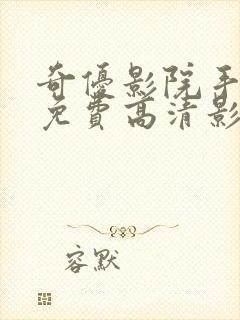 奇優影院手
免費高清影
容默